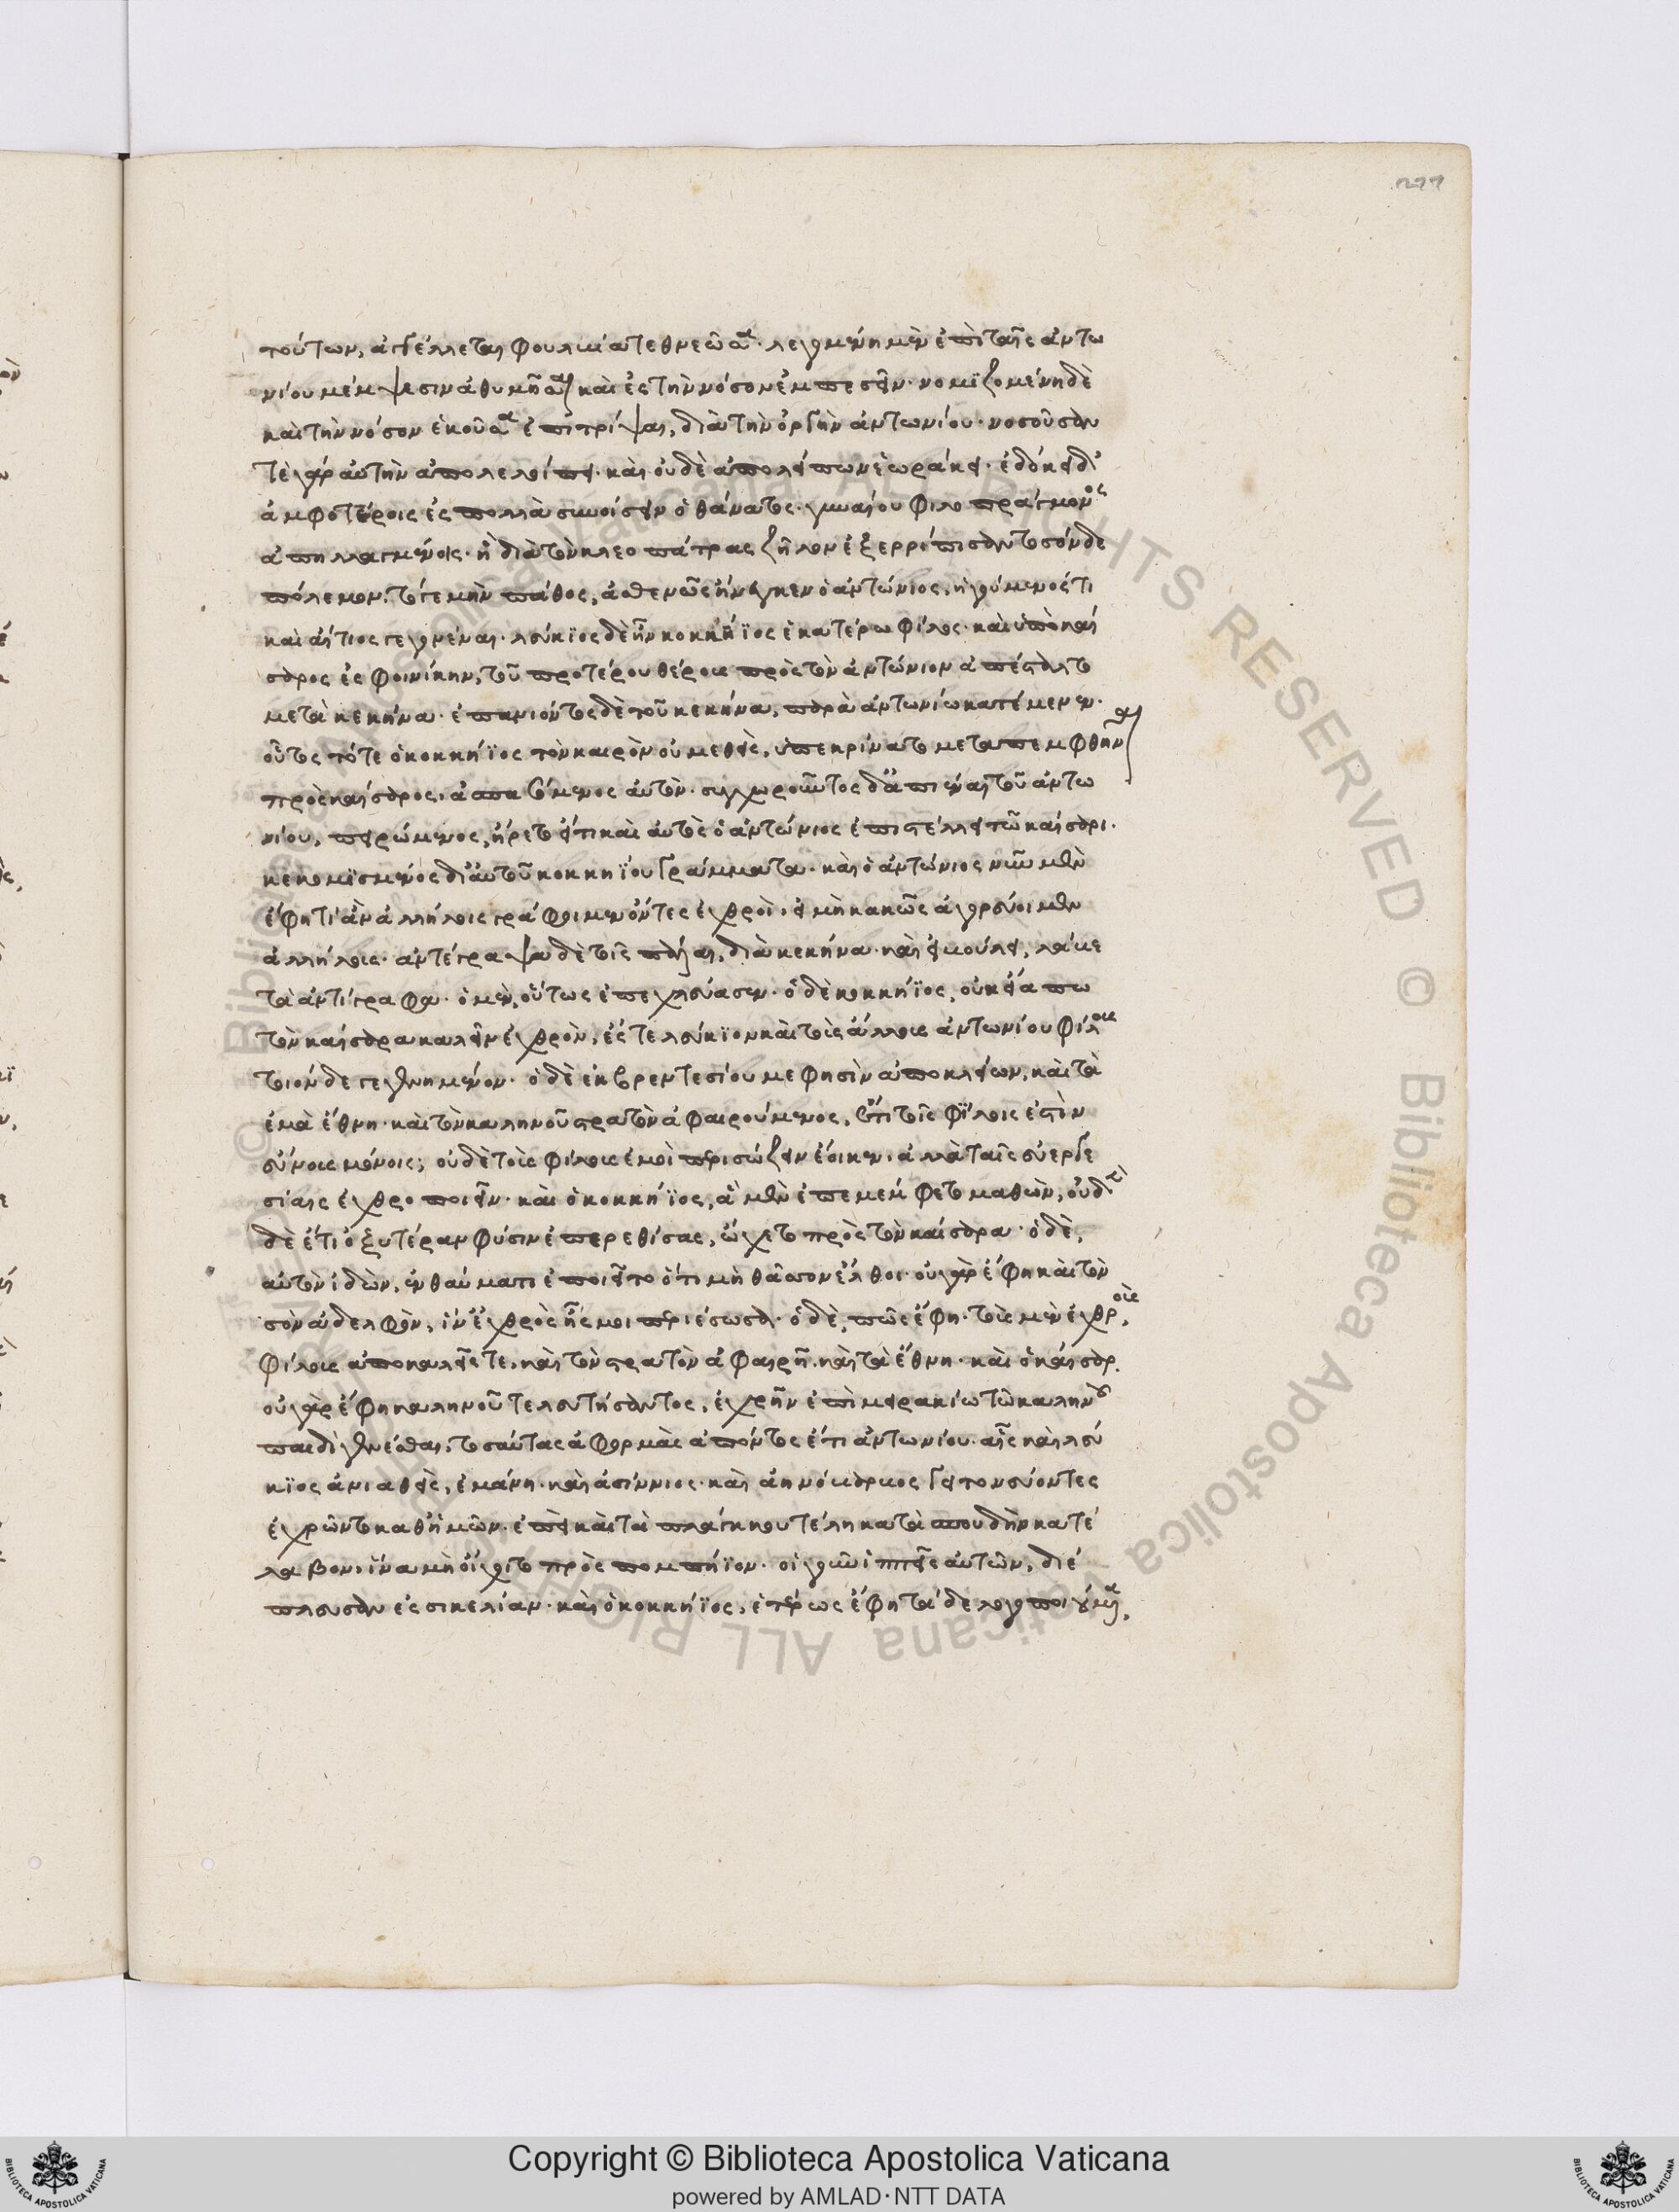 277
τούτων, ἀγγέλλεται φουλβία τεθνεῶσα· λεγομένη μὲν ἐπὶ ταῖς ἀντω
νίου μέμψεσιν ἀθυμῆσαι καὶ ἐς τὴν νόσον ἐμπεσεῖν· νομϊζομένη δὲ
καὶ τὴν νόσον ἑκοῦσα ἐπιτρίψαι, διὰ τὴν ὀργὴν ἀντωνίου· νοσοῦσάν
τε γὰρ αὐτὴν ἀπολελοίπει· καὶ οὐδὲ ἀπολείπων ἑωράκει· ἐδόκει δ'
ἀμφοτέροις ἐς πολλὰ συνοίσειν ὁ θάνατος· γυναίου φιλοπράγμονος
ἀπηλλαγμένοις· ἣ διὰ τὸν κλεοπάτρας ζῆλον ἐξερρίπισαν τοσόνδε
πόλεμον· τό γε μὴν πάθος, ἀσθενῶς ἤνεγκεν ὁ ἀντώνιος, ἡγούμενός τι
καὶ αἴτιος γεγονέναι· λεύκϊος δὲ ἦν κοκκήϊος ἑκατέρω φίλος· καὶ ὑπὸ καί
σαρος ἐς φοινίκην, τοῦ προτέρου θέρους πρὸς τὸν ἀντώνιον ἀπέσταλτο
μετὰ κεκίνα· ἐπανιόντος δὲ τοῦ κεκίνα, παρὰ ἀντωνίω κατέμενεν·
οὗτος τότε ὁ κοκκήϊος τὸν καιρὸν οὐ μεθεὶς, ὑπεκρίνατο μεταπεμφθῆναι
πρὸς καίσαρος, ἀσπασόμενος αὐτόν· συγχωροῦντος δ' ἀπιέναι τοῦ ἀντω
νίου, πειρώμενος, ἤρετο εἴ τι καὶ αὐτὸς ὁ ἀντώνιος ἐπιστέλλει τῶ καίσαρι·
κεκομϊσμένος δι' αὐτοῦ κοκκηΐου γράμματα· καὶ ὁ ἀντώνιος νῦν μὲν
ἔφη τί ἂν ἀλλήλοις γράφοιμεν ὄντες ἐχθροὶ, εἰ μὴ κακῶς ἀγορεύοιμεν
ἀλλήλοις· ἀντέγραψα δὲ τοῖς πάλαι, διὰ κεκίνα· καὶ εἰ βούλει, λάβε
τὰ ἀντίγραφα· ὁ μὲν, οὕτως ἐπεχλεύασεν· ὁ δὲ κοκκήϊος, οὐκ εἴα πω
τὸν καίσαρα καλεῖν ἐχθρὸν, ἔς τε λεύκϊον καὶ τοὺς ἄλλους ἀντωνίου φίλους
τοιόνδε γεγενημένον· ὁ δὲ ἐκ βρεντεσίου με φησὶν ἀποκλείων, καὶ τὰ
ἐμὰ ἔθνη· καὶ τὸν καληνοῦ στρατὸν ἀφαιρούμενος, ἔτι τοῖς φΐλοις ἐστὶν
εὔνους μόνοις; οὐδὲ τοὺς φίλους ἐμοὶ περισώζειν ἔοικεν, ἀλλὰ ταῖς εὐεργε
σίαις ἐχθροποιεῖν· καὶ ὁ κοκκήϊος, ἃ μὲν ἐπεμέμφετο μαθὼν, οὐδὲν
δὲ ἔτι ὀξυτέραν φύσιν ἐπερεθίσας, ᾤχετο πρὸς τὸν καίσαρα· ὁ δὲ,
αὐτὸν ἰδὼν, ἐν θαύματι ἐποιεῖτο ὅτι μὴ θᾶσσον ἔλθοι· οὐ γὰρ ἔφη καὶ τὸν
σὸν ἀδελφὸν, ἵν' ἐχθρὸς ᾖς μοι περιέσωσα· ὁ δὲ, πῶς ἔφη· τοὺς μὲν ἐχθροὺς,
φίλους ἀποκαλεῖς τε, καὶ τὸν στρατὸν ἀφαιρῇ, καὶ τὰ ἔθνη· καὶ ὁ καίσαρ.
οὐ γὰρ ἔφη καληνοῦ τελευτήσαντος, ἐχρῆν ἐπὶ μειρακίω τῶ καληνοῦ
παιδὶ γενέσθαι τοσαύτας ἀφορμὰς ἀπόντος ἔτι ἀντωνίου· αἷς καὶ λεύ
κϊος ἀνιαθεὶς, ἐμάνη· καὶ ἀσίννιος· καὶ ἀηνόβαρβος γειτονεύοντες
ἐχρῶντο καθ' ἡμῶν· ἐπεὶ καὶ τὰ πλάγκηου τέλη κατὰ σπουδὴν κατέ
λαβον, ἵνα μὴ οἴχοιτο πρὸς πομπήϊον· οἱ γοῦν ἱππεῖς αὐτῶν, διέ
πλευσαν ἐς σικελίαν· καὶ ὁ κοκκήϊος, ἑτέρως ἔφη τάδε λογοποιούμενα,
Copyright © Biblioteca Apostolica Vaticana
powered by AMLAD·NTT DATA